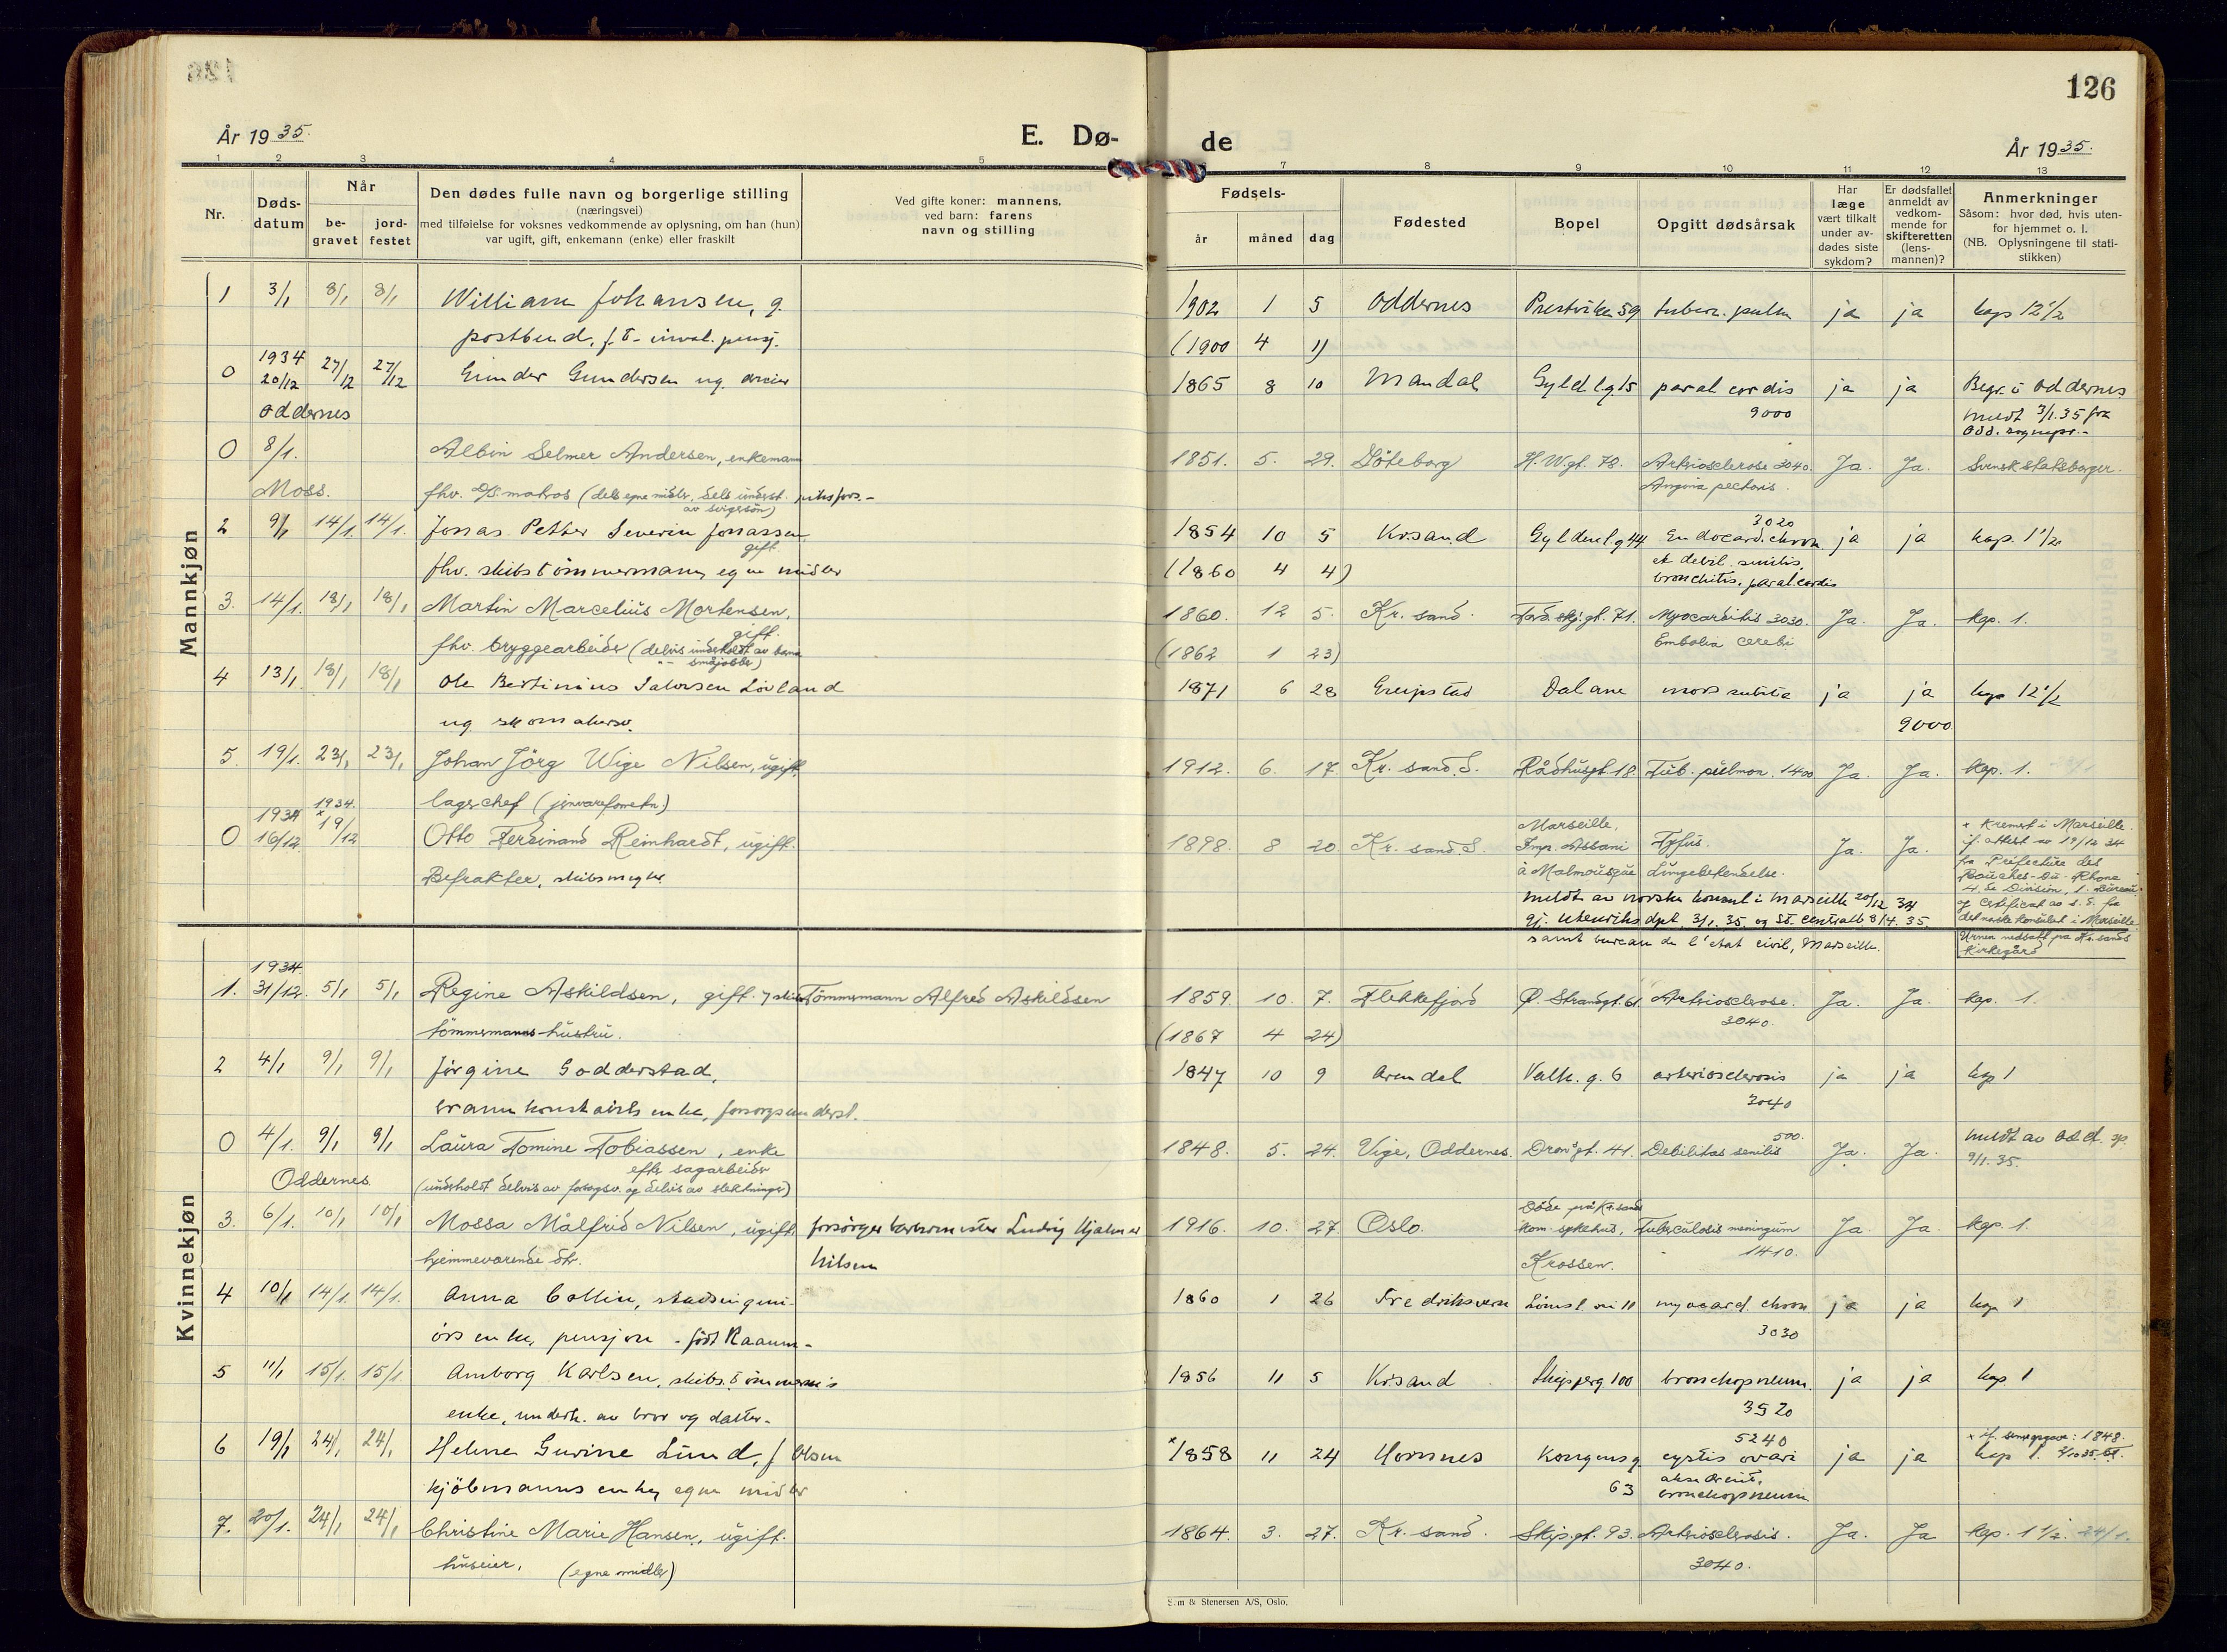 126
År 1935.
E. Dø-
de
År 1935.
1 2 3 4 5 7 8 9 10 11 12 13
Nr.
Døds-
datum
Når
be-
gravet
jord-
festet
Den dødes fulle navn og borgerlige stilling
(næringsvei)
med tilføielse for voksnes vedkommende av oplysning, om han (hun)
var ugift, gift, enkemann (enke) eller fraskilt
Ved gifte koner: mannens,
ved barn: farens
navn og stilling
Fødsels-
år måned dag
Fødested
Bopel
Opgitt dødsårsak
Har
læge
vært tilkalt
under av-
dødes siste
sykdom?
Er dødsfallet
anmeldt av
vedkom-
mende for
skifteretten
(lens-
mannen)?
Anmerkninger
Såsom: hvor død, hvis uten-
for hjemmet o. l.
(NB. Oplysningene til stati-
stikken)
Mannkjøn
1 3/1 8/1 8/1 William Johansen, g. 1902 1 5 Oddernes Prestviken 59 tuberc. pulm ja ja kap 12 1/2
postbud, (1900 4 1)
1934
0 20/12 27/12 27/12 Gunder Gundersen ug. 1865 8 10 Mandal Gyldlg. 15 paral cordis ja ja Begr. i Oddernes
Oddernes 9000 meldt 3/1.35 fra
0 8/1. Albin Selmer Andersen, enkemann 1851. 5. 29. Göteborg H.W.gt. 78. Artriosclerose 3040. Ja. Ja. Svensk statsborger.
Moss. fhv. D/S. matros (dels egne midler, dels underst. Angina pectoris.
av svigersøn)
3020
2 9/1 14/1. 14/1. Jonas Petter Severin Jonassen, 1854 10 5 Krsand Gyldenlg 44 Endocard. chron. ja ja kap. 1 1/2
gift et debil. senilis,
fhv. skibstömmermann, egne midler (1860 4 4) bronchitis, paral. cordis
3. 14/1. 18/1 18/1 Martin Marcelius Mortensen, 1860. 12 5. Kr. sand. 71. Myocarditis 3030. Ja. Ja. kap. 1.
gift.
fhv. bryggearbeider (delvis underholdt av barna (1862 1 23) Embolia cerebi
småjobber)
4 13/1 18/1 18/1 Ole Bertinius Salvesen Lövland 1871 6 28 Greipstad Dalane mors subita ja ja kap 12 1/2
ug skomakersv. 9000
5. 19/1. 23/1 23/1 Johan Jörg Wige Nilsen, ugift. 1912. 6. 17 Kr. sand. S. Rådhusgt. 18. Tub. pulmon. 1400 Ja. Ja. kap. 1.
lagerchef (jernvareforretn.)
1934 1934.
0 16/12 19/12 Otto Ferdinand Reinhardt, ugift. 1898. 8 20 Kr. sand. S. Marseille, Tyfus. Ja. Ja. + Kremert i Marseille.
Befrakter, skibsmegler. Imp. Assani if. attest av 19/12 34
à Malmousque Lungebetendelse. fra Préfecture des
Bouches-du-Rhone
4. de Division, 1. Bureau
meldt av norske konsul i Marseille 20/12 34 og Certificat av s. d. fra
gj. Utenriksdpt. 3/1. 35. og St. Centralb 8/4. 35. det norske konsulat i Marseille.
samt bureau de l'etat civil, Marseille. Urnen nedsatt på Kr.sands
kirkegård
Kvinnekjøn
1934.
1. 31/12. 5/1 5/1 Regine Askildsen, gift. Tömmermann Alfred Askildsen 1859. 10. 7. Flekkefjord Ø. Strandgt. 61. Artriosclerose. Ja. Ja. kap. 1.
tömmermanns hustru. (1867 4 24) 3040.
2 4/1 9/1 9/1 Jörgine Godderstad, 1847 10 9 Arendal Valh. g. 6 arteriosclerosis ja ja kap 1
brannkonstabels enke, forsorgsunderst. 3040
0 4/1. 9/1 9/1 Laura Tomine Tobiassen, enke 1848. 5. 24. Vige, Oddernes. Dron.gt. 41. Debilitas senilis 500. Ja. Ja. meldt av Odd. sp.
efter sagarbeider 9/1. 35.
Oddernes (underholdt delvis av forsorgsv. og delvis av slektninger)
3. 6/1. 10/1 10/1 Mossa Målfrid Nilsen, ugift. forsörger Ludvig Hjalmar 1916. 10. 27. Oslo. Döde på Kr.sand Tuberculosis meningum Ja. Ja. kap. 1.
hjemmeværende dtr. Nilsen kom. sykehus, 1410.
Krossen.
4 10/1 14/1. 14/1. Anna Collin, stadsingeni- 1860 1 26 Fredriksvern 11 myocard. chron ja ja kap 1
örs enke, pensjon - född Raaum- 3030
5 11/1 15/1. 15/1 Amborg Karlsen, skibstömmerm's 1856 11 5 Krsand Skipperg 100 bronchopneum. ja ja kap. 1
enke, underh. av bror og datter- 3520
6 19/1 24/1 24/1 Helene Gurine Lund, f Olsen *1858 11 24 Hornnes Kongensg. 5240 cystis ovari ja ja + if. senere opgave: 1848.
kjöbmanns enke, egne midler 63 bronchopneum kap 1.
7. 20/1. 24/1 24/1 Christine Marie Hansen, ugift. 1864. 3. 27. Kr. sand. Skip.gt. 93. Artriosclerosis. Ja. Ja kap. 1 1/2. 24/1.
huseier, (egne midler) 3040.
& Stenersen A/S, Oslo.